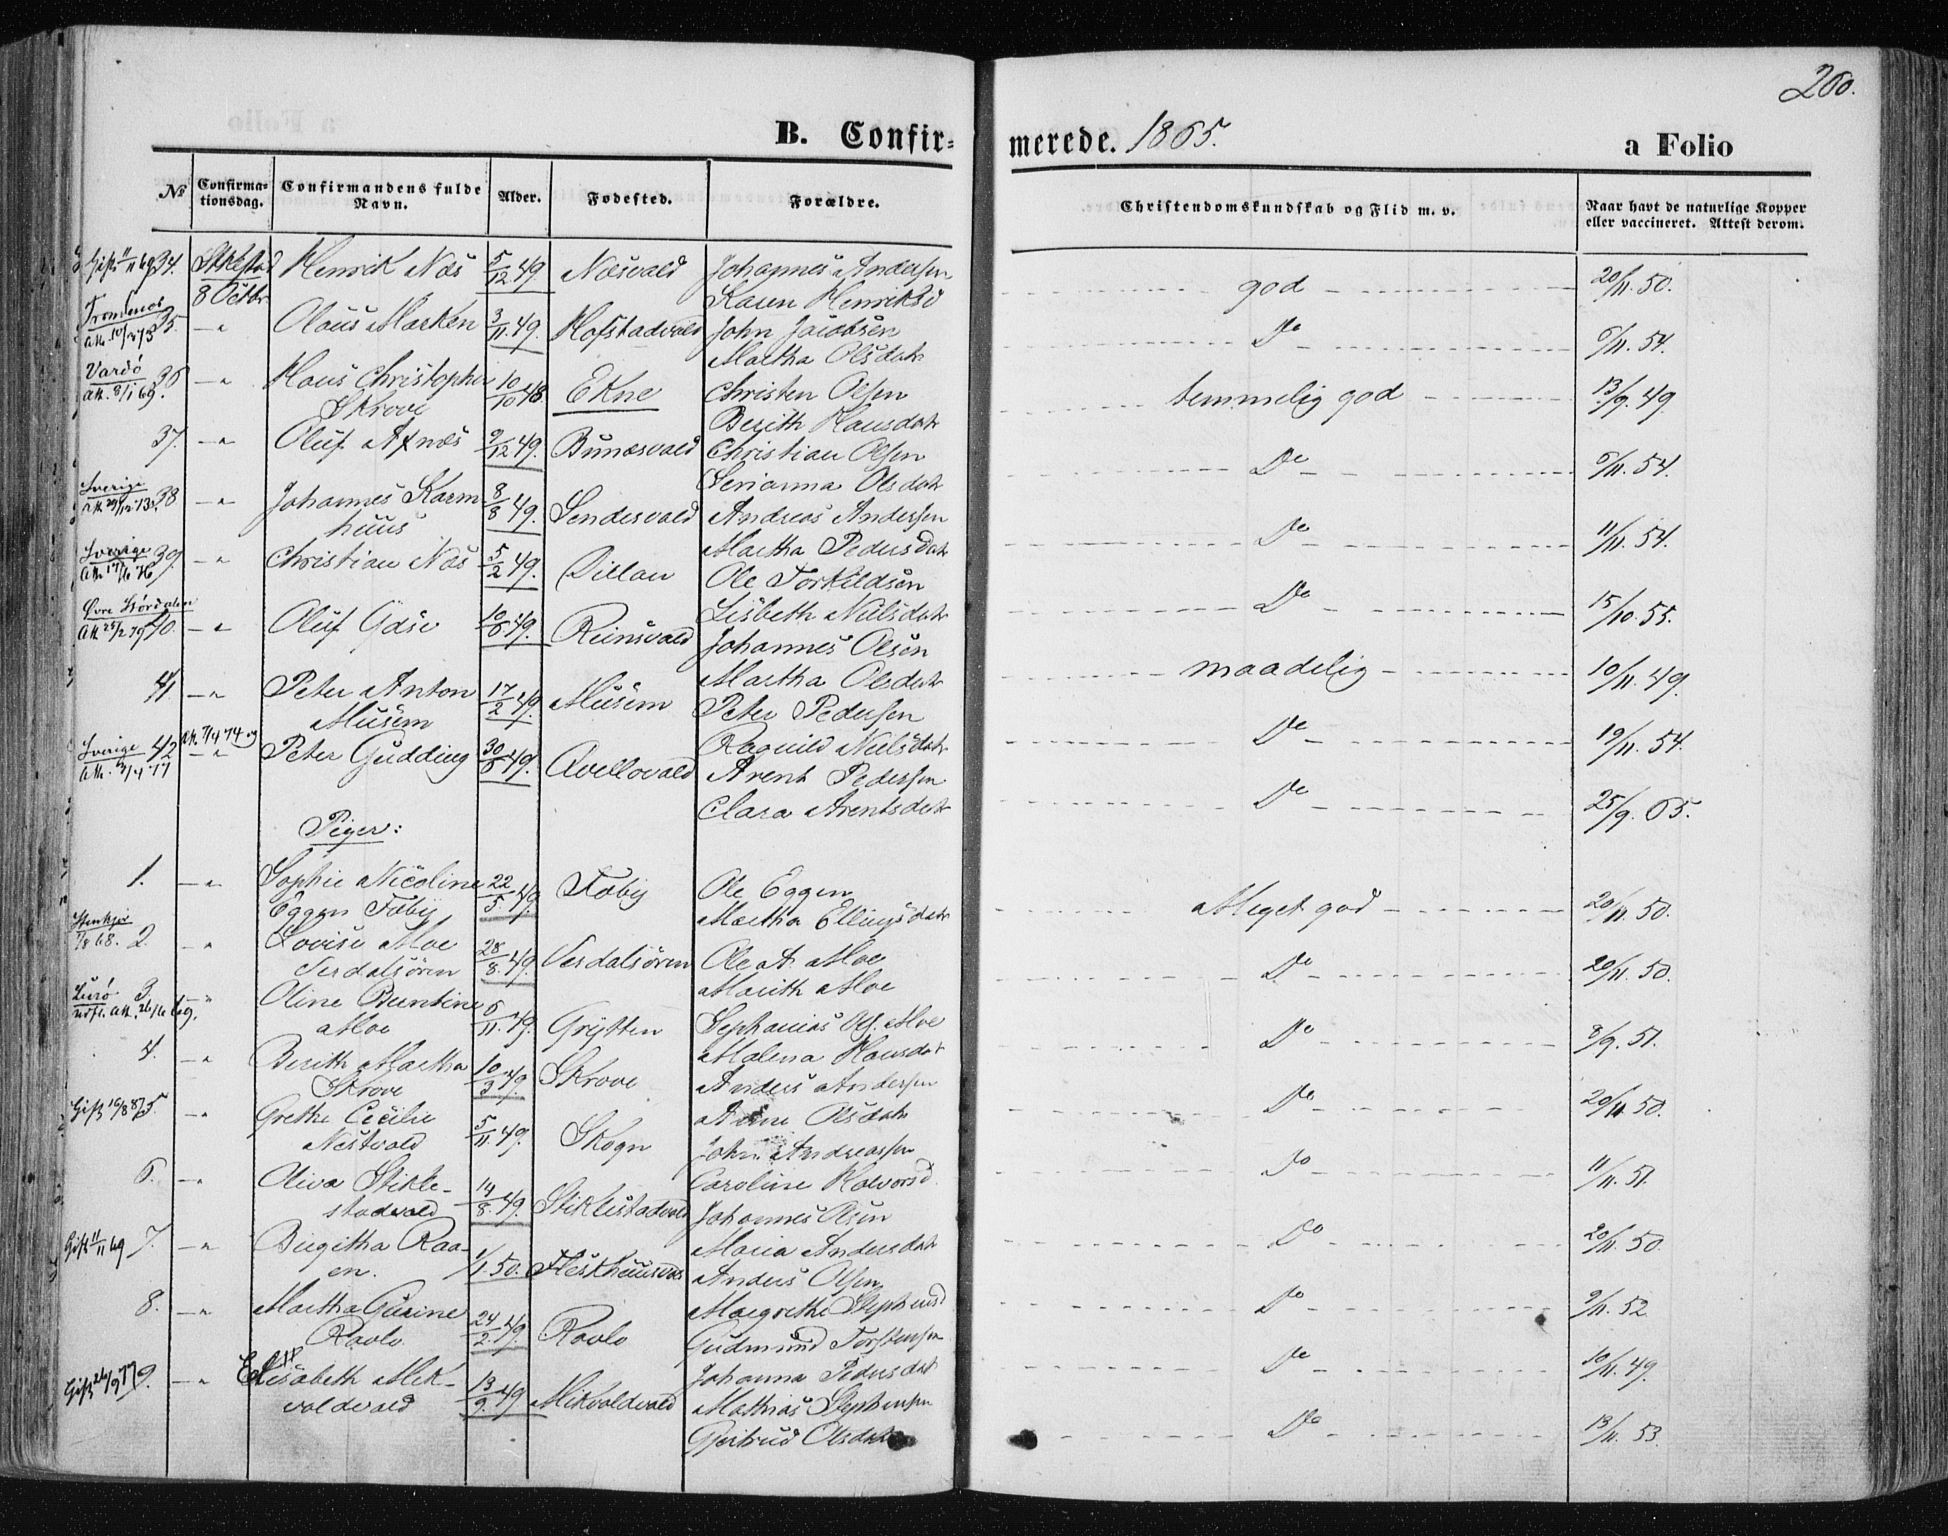 260.
B. Confir=
merede. 1865.
a Folio
No
Confirma=
tionsdag.
Confirmandens fulde
Navn.
Alder.
Fødested.
Forældre.
Christendomskundskab og Flid m. v.
Naar havt de naturlige Kopper
eller vaccineret. Attest derom.
Gift 11/11 69 34. Stiklestad Henrik Næs 5/12 49 Næsvald Johannes Andersen god 20/11. 50.
8 Octbr. Karen Henriksd
Tromsnæs
Att. 10/2 75 35. — " Olaus Marken 3/11. 49. Hofstadvald John Jacobsen Do 6/11. 54.
Martha Olsdatr
Vardö
Att. 8/1 69. 36 — " Hans Christopher 10/10 48. Ekne Christen Olsen temmelig god 13/9. 49
Skrove Berith Hansdatr
37. — " Oluf Axnæs 9/12 49. Bunæsvald Christian Olsen Do 6/11. 54.
Serianna Olsdatr
Sverige
Att. 29/12 73. 38 — " Johannes Karm- 8/8 49. Sendesvald Andreas Andersen Do 11/11. 54.
huus Martha Pedersdatr
Sverige
Att. 17/6 76 39. — " Christian Næs 5/2 49. Dillan Ole Torkildsen Do 15/10. 55.
Lisbeth Nielsdatr
Övre Stördalen
Att. 25/2 79 40. — " Oluf Gåse 10/6 49. Reinsvald Johannes Olsen maadelig 10/11. 49.
Martha Olsdatr
41 — " Peter Anton 17/2 49. Musem Peter Pedersen Do 19/11. 54.
Musem Ragnild Nielsdatr
Att. 7/4 74 og
Sverige 42 — " Peter Gudding 30/6 49. Avellovald Arent Pedersen Do 25/9. 65.
Clara Arentsdatr
Piger:
1. — " Sophie Nicoline 22/5. 49. Föby Ole Eggen Meget god 20/11. 50.
Eggen Föby Martha Ellingsdatr
Stenkjer
2. " Lovise Moe 28/8. 49. Verdalsören Ole A Moe Do 20/11. 50.
Verdalsören Marith Moe
Lurö
udfl. Att. 26/6 69. 3 — " Oline Berntine 6/11. 49. Grytten Sephanias Ols. Moe Do 8/9. 51.
Moe Malena Hansdatr
4. — " Berith Martha 10/3 49. Skrove Anders Andersen Do 20/11. 50.
Skrove Anne Olsdatr
Gift 16/8 87 5. — " Grethe Cecilie 5/11. 49. Skogn John Andreassen Do 11/11. 51.
Nestvold Caroline Halvorsd.
6. — " Oliva Stikle- 14/8. 49. Stiklestadvald Johannes Olsen Do 20/11. 50.
stadvald Maria Andersdatr
Gift 11/11 69 7. — " Birgitha Raa- 1/1. 50. Fleskhusvald Anders Olsen Do 9/11. 52.
en. Margrethe Stephensd
8. — " Martha Gurine 24/2. 49. Ravlo Gudmund Torstensen Do 10/11. 49.
Ravlo Johanna Pedersdatr
Gift 26/9 77 9. — " Elisabeth Mik- 13/9. 49 Mikvoldvald Mathias Stephensen Do 13/11. 53.
voldvald Gjertrud Olsdatr